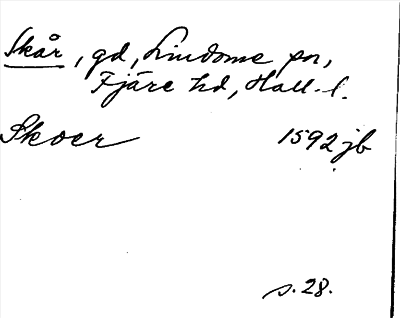 Skår, gd, Lindome sn,
Fjäre hd, Hall. l.
Skoer 1592 jb
s. 28.